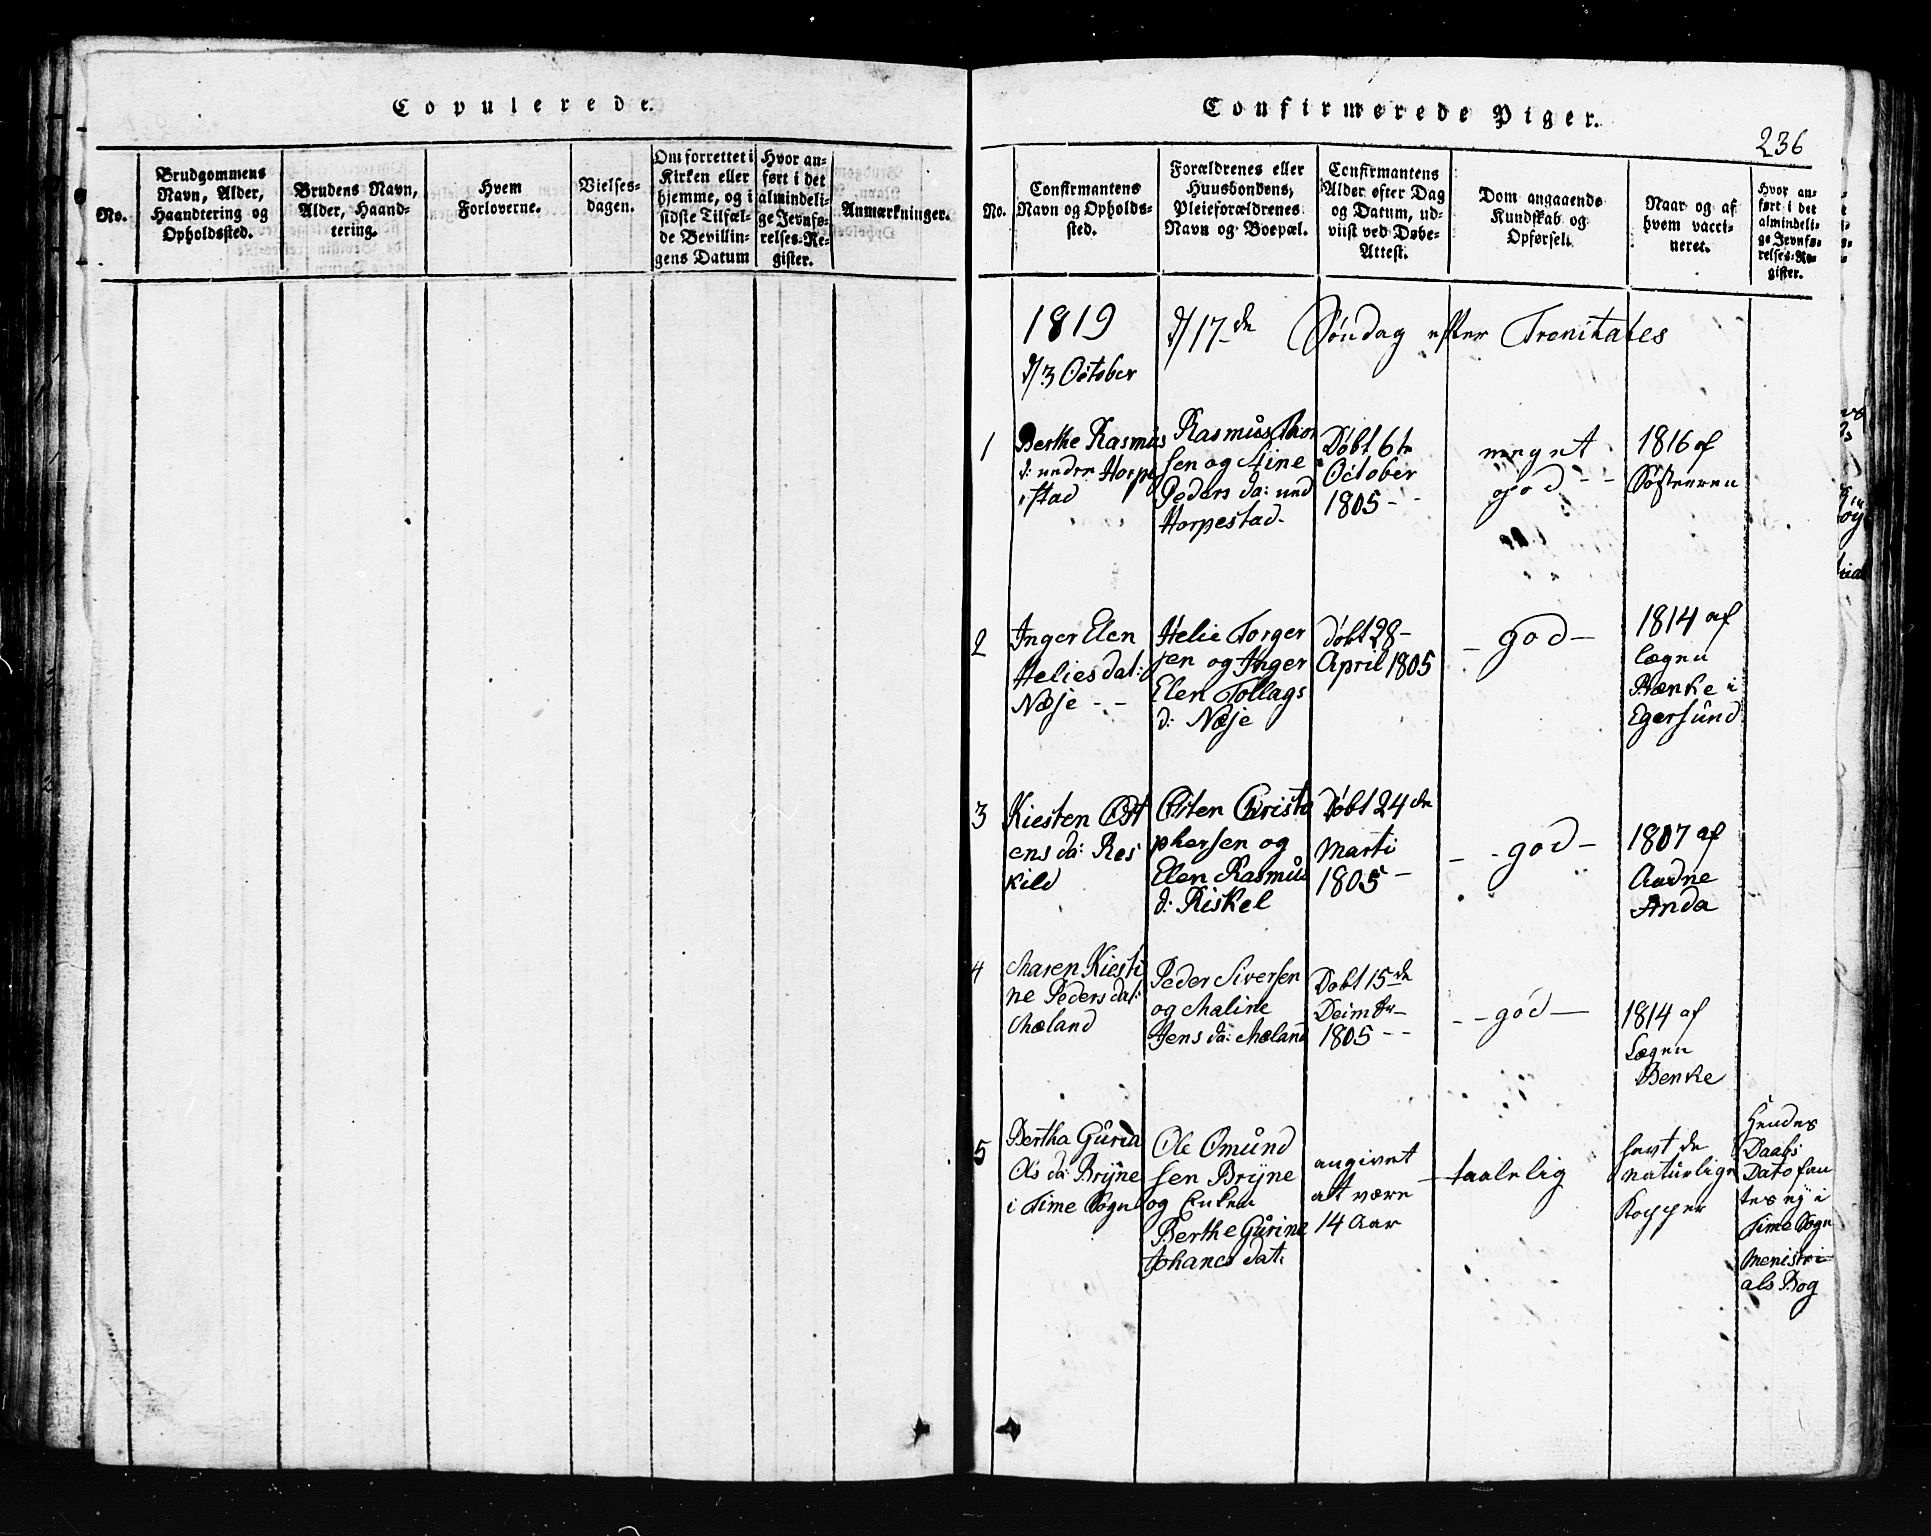 Copulerede.
No.
Brudgommens
Navn, Alder,
Haandtering og
Opholdssted.
Brudens Navn,
Alder, Haand-
tering.
Hvem
Forloverne.
Vielses-
dagen.
Om forrettet i
Kirken eller
hjemme, og i
sidste Tilfæl-
de Bevillin-
gens Datum
Hvor an-
ført i det
almindeli-
ge Jevnfø-
relses-Re-
gister.
Anmærkninger.
Confirmerede Piger.
236
No.
Confirmantens
Navn og Opholds-
sted.
Forældrenes eller
Huusbondens,
Pleieforældrenes
Navn og Boepæl.
Confirmantens
Alder efter Dag
og Datum, ud-
viist ved Døbe-
Attest.
Dom angaaende
Kundskab og
Opførsel.
Naar og af
hvem vacci-
neret.
Hvor an-
ført i det
almindeli-
ge Jevnfø-
relses-Re-
gister.
1819
d/3 October
d/17de Søndag efter Trenitates
1
Berthe Rasmus
d: under Horpe
stad
Rasmus Thor
sen og Stine
Peders da: und
Horpestad-
Døbt 6te
October
1805 -
meget
god - -
1816 af
Søsteren
2
Inger Elen
Helies dat:
Næje - -
Helie Torger
sen og Inger
Elen Tollags
d: Næje
døbt 28-
April 1805
- god -
1814 af
lægen
Bænke i
Egersund
3
Kiesten Ost
ens da: Res
kild
Osten Christo
phersen og
Elen Rasmus
d: Riskel
Døbt 24de
Marti
1805 -
- - god -
1807 af
Aadne
Anda
4
Maren Kiesti
ne Peders dat:
Mæland
Peder Siversen
og Maline
Jens da: Mæland
Døbt 15de
Deimbr-
1805 - -
- - god -
1814 af
Lægen
Benke
5
Bertha Guria
Ols da: Bryne
i Time Sogn
Ole Omund
sen Bryne
og Enken
Berthe Gurine
Johanes dat:
angivet
att være
14 Aar
- taalelig
havt de
naturlige
Kopper
Hendes
Daabs
Dato fan
tes ej i
Time Sogn
Menistri-
als Bog